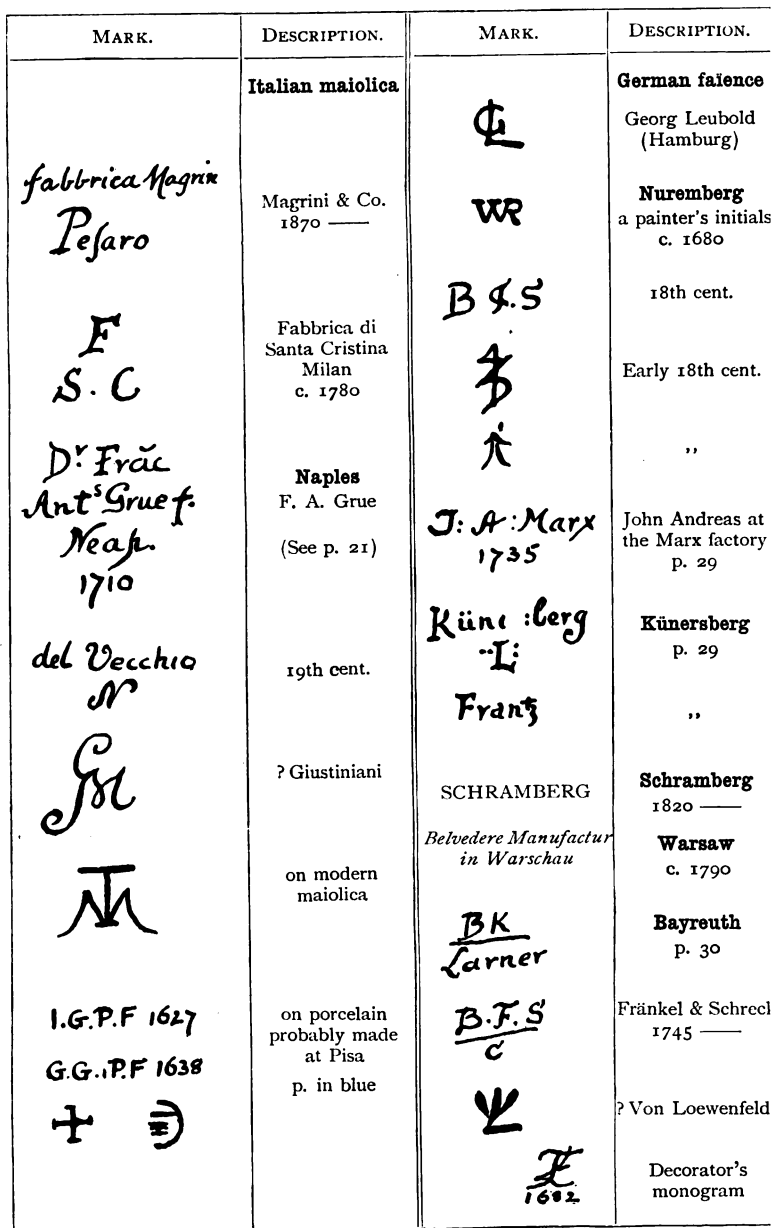 MARK.
DESCRIPTION.
Italian maiolica
fabbrica Magrin
Pesaro
Magrini & Co.
1870 ——
F
S. C
Fabbrica di
Santa Cristina
Milan
c. 1780
Dr: Frăc
Ants Grue f.
Neap.
1710
Naples
F. A. Grue
(See p. 21)
del Vecchio
N
19th cent.
GM
? Giustiniani
on modern
maiolica
I.G.P.F 1627
G.G..P.F 1638
on porcelain
probably made
at Pisa
p. in blue
MARK.
DESCRIPTION.
German faïence
Georg Leubold
(Hamburg)
WR
Nuremberg
a painter's initials
c. 1680
B S
18th cent.
Early 18th cent.
,,
J: A: Marx
1735
John Andreas at
the Marx factory
p. 29
Küni :berg
··L:
Künersberg
p. 29
Frantz
,,
SCHRAMBERG
Schramberg
1820 ——
Belvedere Manufactur
in Warschau
Warsaw
c. 1790
BK
Larner
Bayreuth
p. 30
B.F.S
C
Fränkel & Schreck
1745 ——
? Von Loewenfeld
1682
Decorator's
monogram